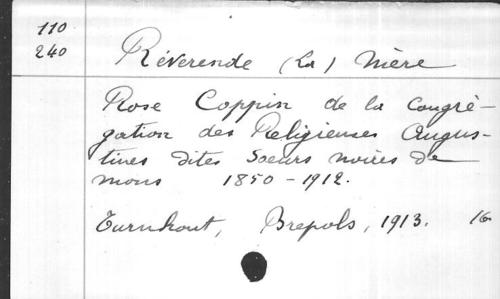 110
240
Réverende (La) Mère
Rose Coppin de la congré-
gation des Religieuses Augus-
tines dites Soeurs noires de
mons 1850-1912.
Turnhout, Brepols, 1913. 16